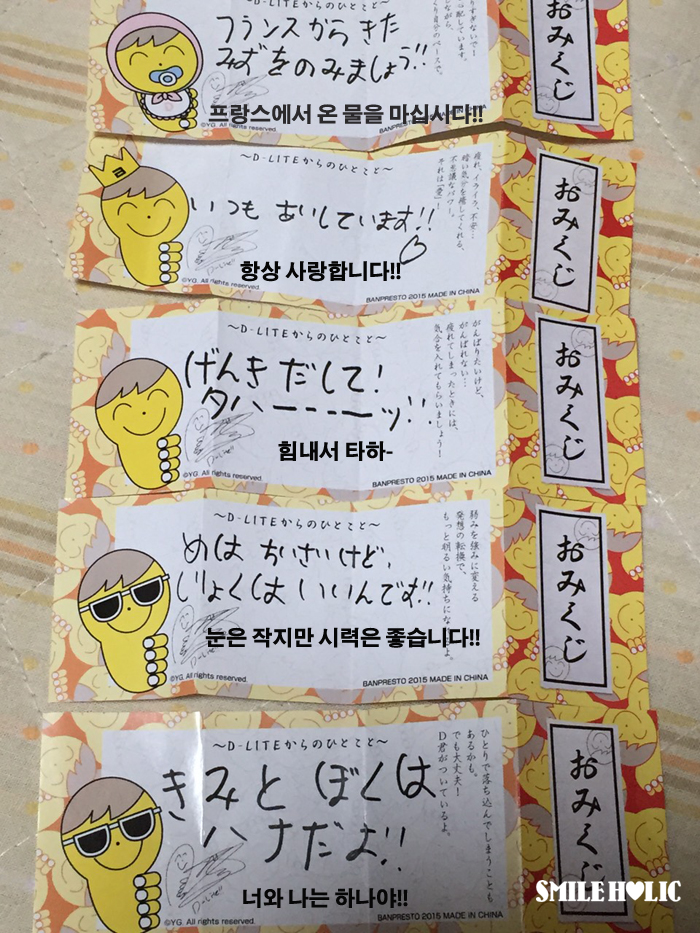 〜D-LITEからのひとこと〜
フランスからきた
みずをのみましょう!!
프랑스에서 온 물을 마십시다!!
©YG. All rights reserved.
BANPRESTO 2015 MADE IN CHINA
おみくじ
〜D-LITEからのひとこと〜
いつも あいしています!!
疲れ、イライラ、不安…
暗い気分を癒してくれる、
不思議なパワー。
それは「愛」!
항상 사랑합니다!!
©YG. All rights reserved.
BANPRESTO 2015 MADE IN CHINA
おみくじ
〜D-LITEからのひとこと〜
げんき だして!
タハー---ーッ!!
がんばりたいけど、
がんばれない…
疲れてしまったときには、
気合を入れてもらいましょう!
힘내서 타하-
©YG. All rights reserved.
BANPRESTO 2015 MADE IN CHINA
おみくじ
〜D-LITEからのひとこと〜
めは ちいさいけど、
しりょくは いいんです!!
弱みを強みに変える
発想の転換で、
もっと明るい気持ちにな
よ。
눈은 작지만 시력은 좋습니다!!
©YG. All rights reserved.
BANPRESTO 2015 MADE IN CHINA
おみくじ
〜D-LITEからのひとこと〜
きみと ぼくは
ハナだよ!!
ひとりで落ち込んでしまうことも
あるかも。
でも大丈夫!
D君がついているよ。
너와 나는 하나야!!
©YG. All rights reserved.
BANPRESTO 2015 MADE IN CHINA
おみくじ
SMILE HOLIC